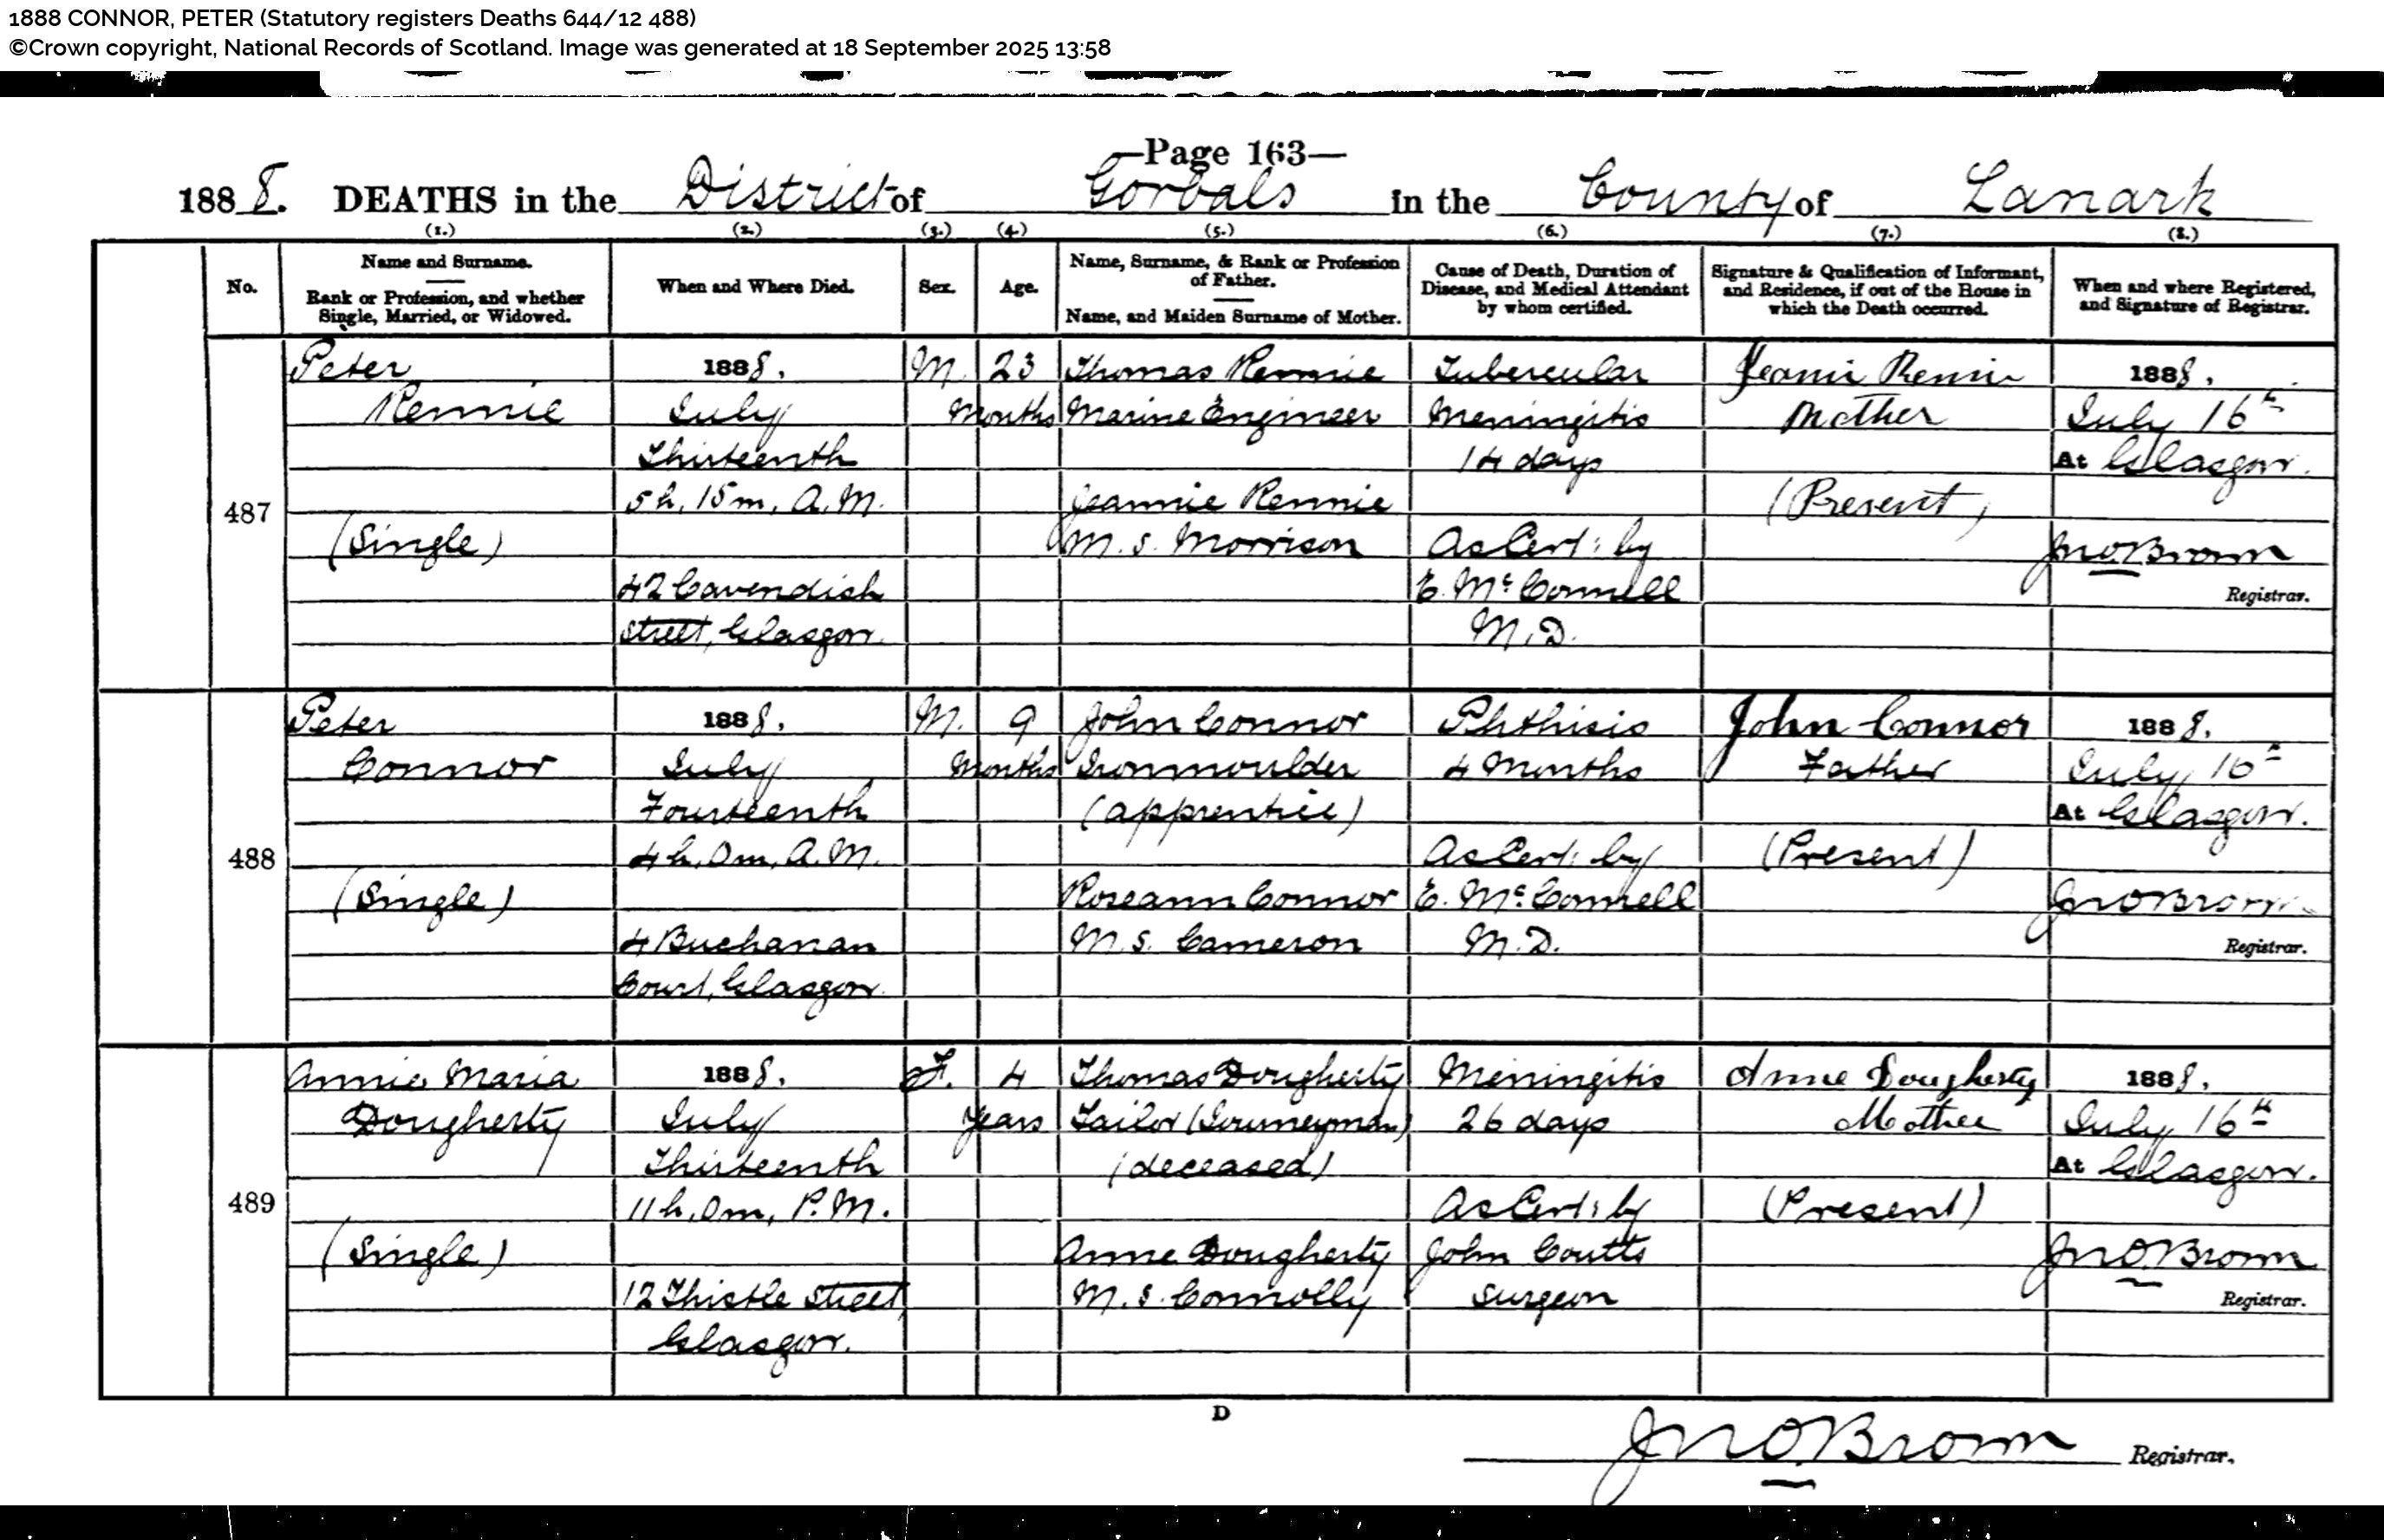 1888 CONNOR, PETER (Statutory registers Deaths 644/12 488)
©Crown copyright, National Records of Scotland. Image was generated at 18 September 2025 13:58
—Page 163—
1888. DEATHS in the District of Gorbals in the County of Lanark
(1.) (2.) (3.) (4.) (5.) (6.) (7.) (8.)
No.
Name and Surname.
Rank or Profession, and whether
Single, Married, or Widowed.
When and Where Died.
Sex.
Age.
Name, Surname, & Rank or Profession
of Father.
Name, and Maiden Surname of Mother.
Cause of Death, Duration of
Disease, and Medical Attendant
by whom certified.
Signature & Qualification of Informant,
and Residence, if out of the House in
which the Death occurred.
When and where Registered,
and Signature of Registrar.
487
Peter
Rennie
(Single)
1888.
July
Thirteenth
5h, 15m, A.M.
42 Cavendish
Street, Glasgow.
M.
23
Months
Thomas Rennie
Marine Engineer
Jeannie Rennie
M.S. Morrison
Tubercular
Meningitis
14 days
As Cert: by
E. McConnell
M.D.
Jeanie Rennie
Mother
(Present)
1888.
July 16th
At Glasgow.
Jno Brown
Registrar.
488
Peter
Connor
(Single)
1888.
July
Fourteenth
4h, 0m, A.M.
4 Buchanan
Court, Glasgow.
M.
9
Months
John Connor
Ironmoulder
(apprentice)
Roseann Connor
M.S. Cameron
Phthisis
4 Months
As Cert: by
E. McConnell
M.D.
John Connor
Father
(Present)
1888.
July 16th
At Glasgow.
Jno Brown
Registrar.
489
Annie Maria
Dougherty
(Single)
1888.
July
Thirteenth
11h, 0m, P.M.
12 Thistle Street
Glasgow.
F.
4
Years
Thomas Dougherty
Tailor (Journeyman)
(deceased)
Anne Dougherty
M.S. Connolly
Meningitis
26 days
As Cert: by
John Coutts
Surgeon
Anne Dougherty
Mother
(Present)
1888.
July 16th
At Glasgow.
Jno Brown
Registrar.
D
Jno Brown Registrar.